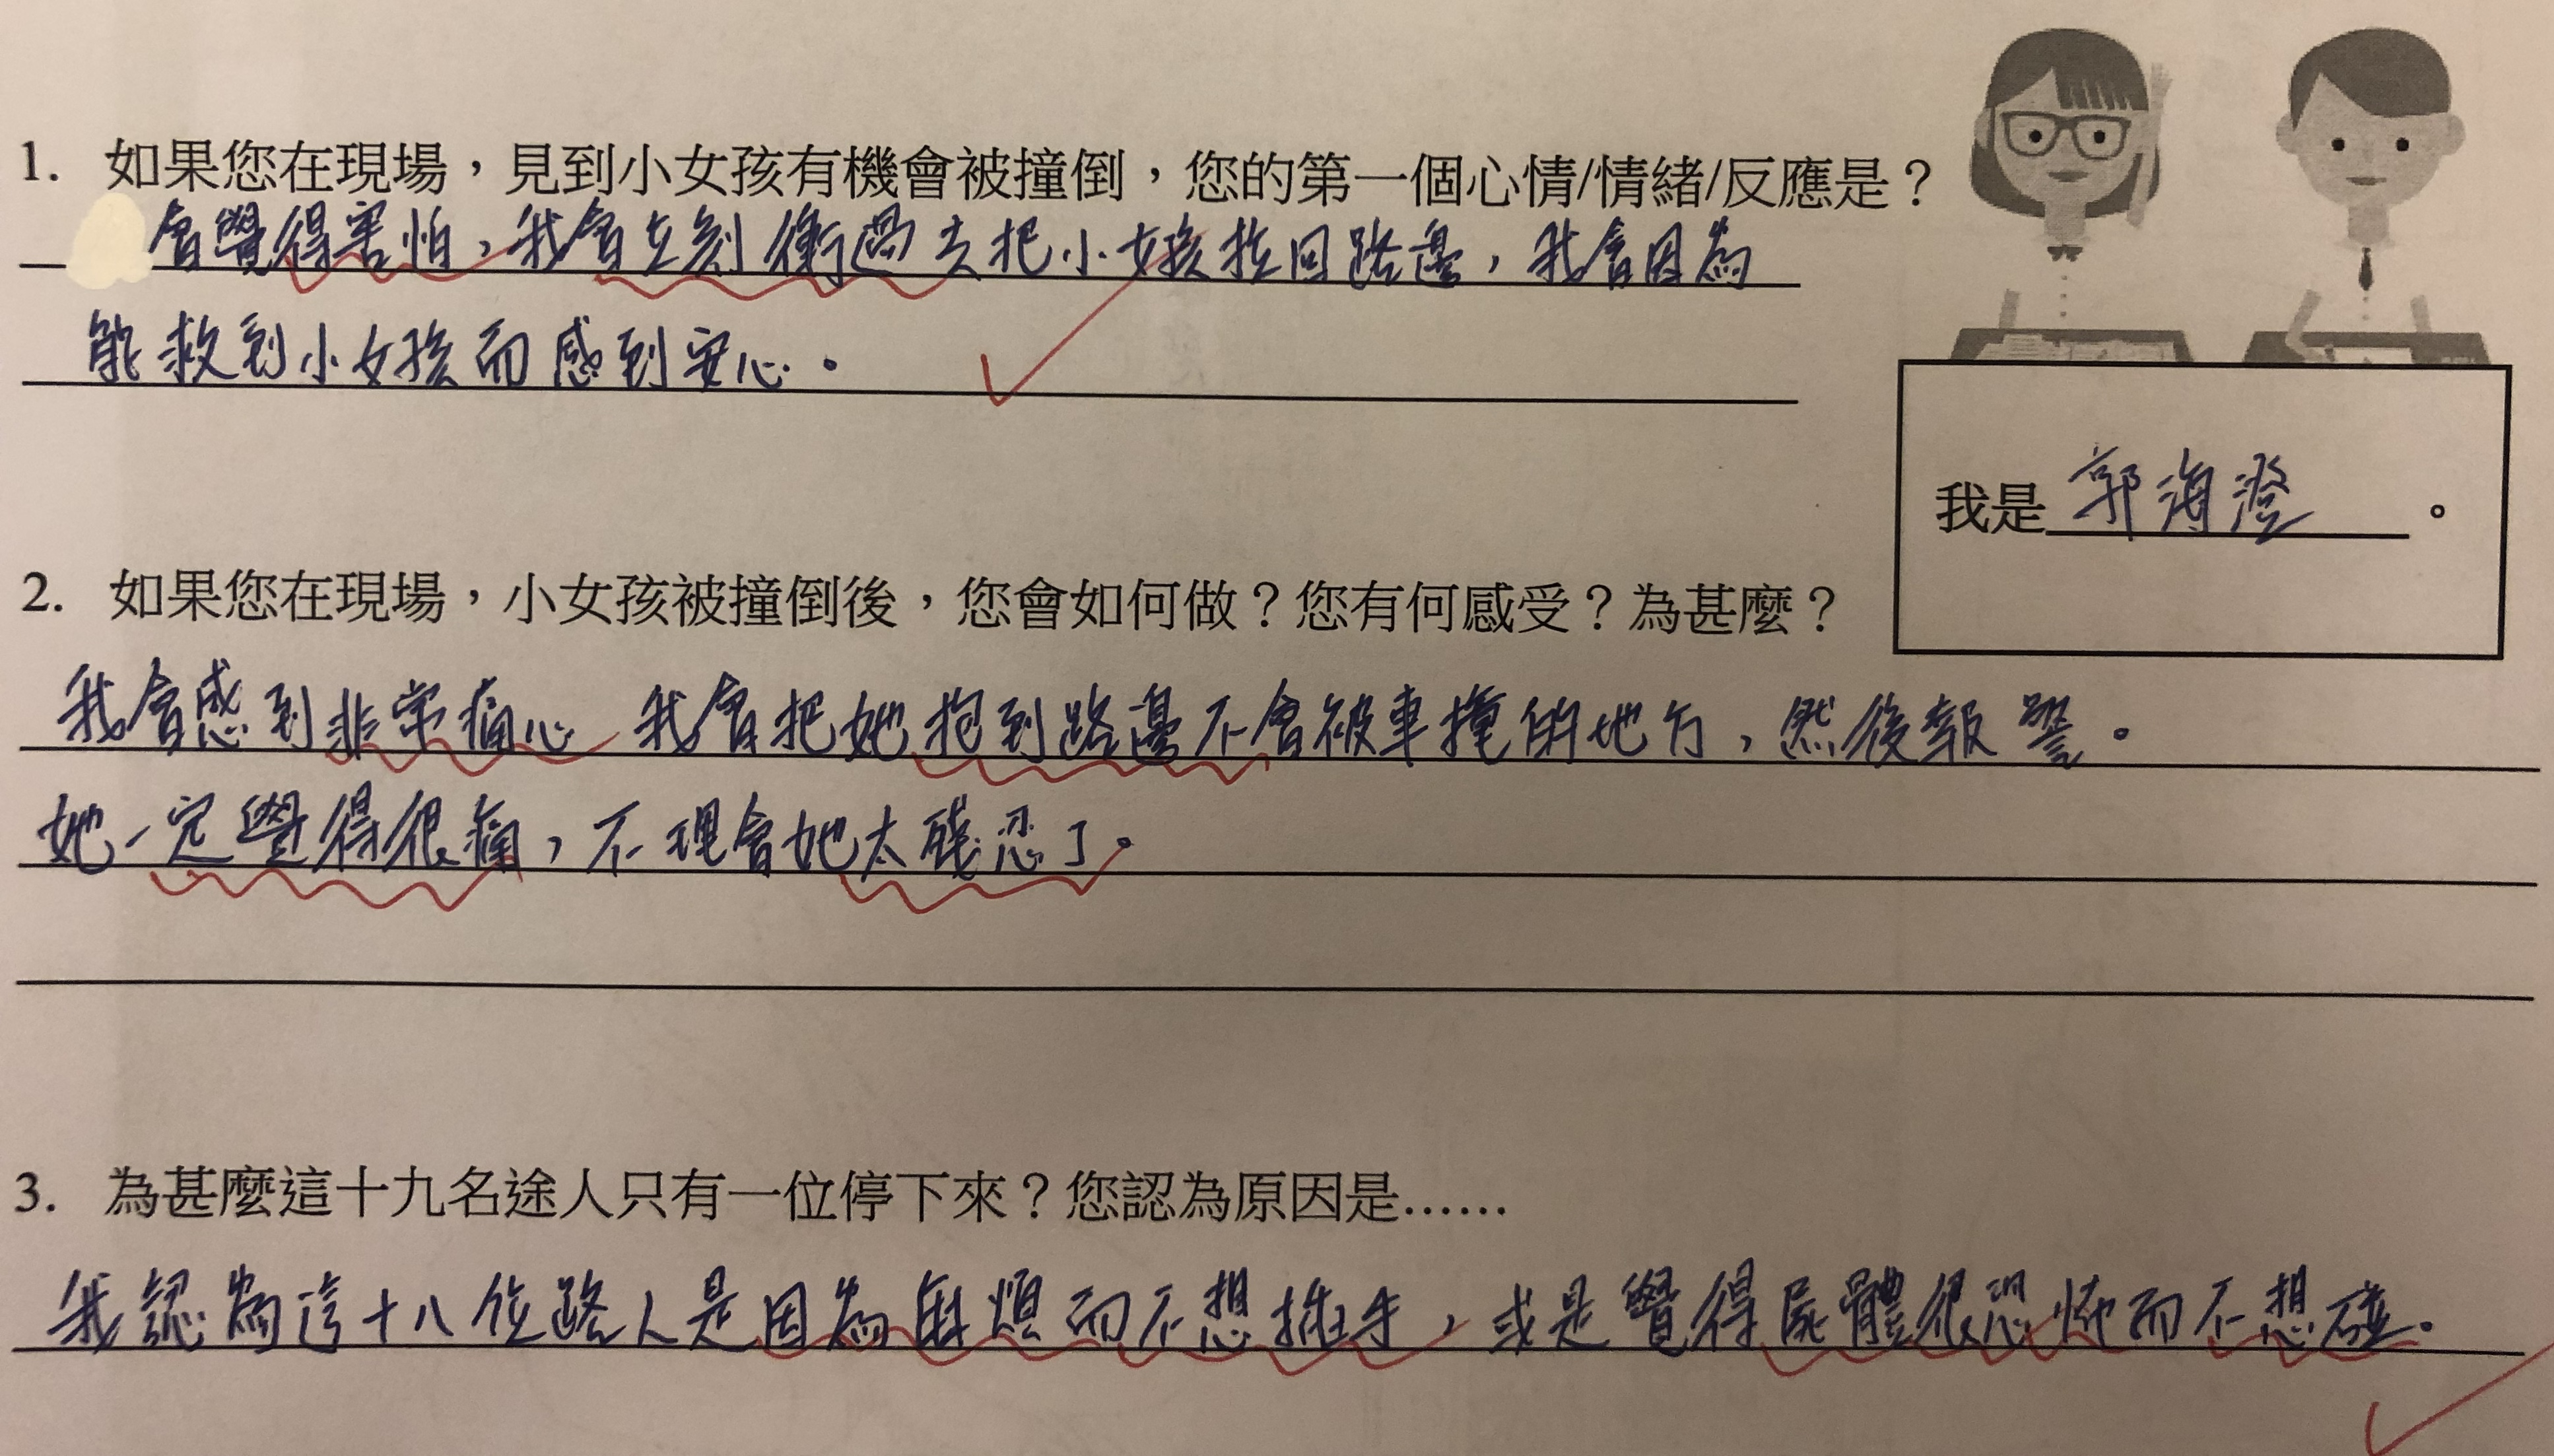 1. 如果您在現場，見到小女孩有機會被撞倒，您的第一個心情/情緒/反應是？
會覺得害怕，我會立刻衝過去把小女孩拉回路邊，我會因為
能救到小女孩而感到安心。
我是郭海澄。
2. 如果您在現場，小女孩被撞倒後，您會如何做？您有何感受？為甚麼？
我會感到非常痛心 我會把她抱到路邊不會被車撞的地方，然後報警。
她一定覺得很痛，不理會她太殘忍了。
3. 為甚麼這十九名途人只有一位停下來？您認為原因是……
我認為這十八位路人是因為麻煩而不想插手，或是覺得屍體很恐怖而不想碰。